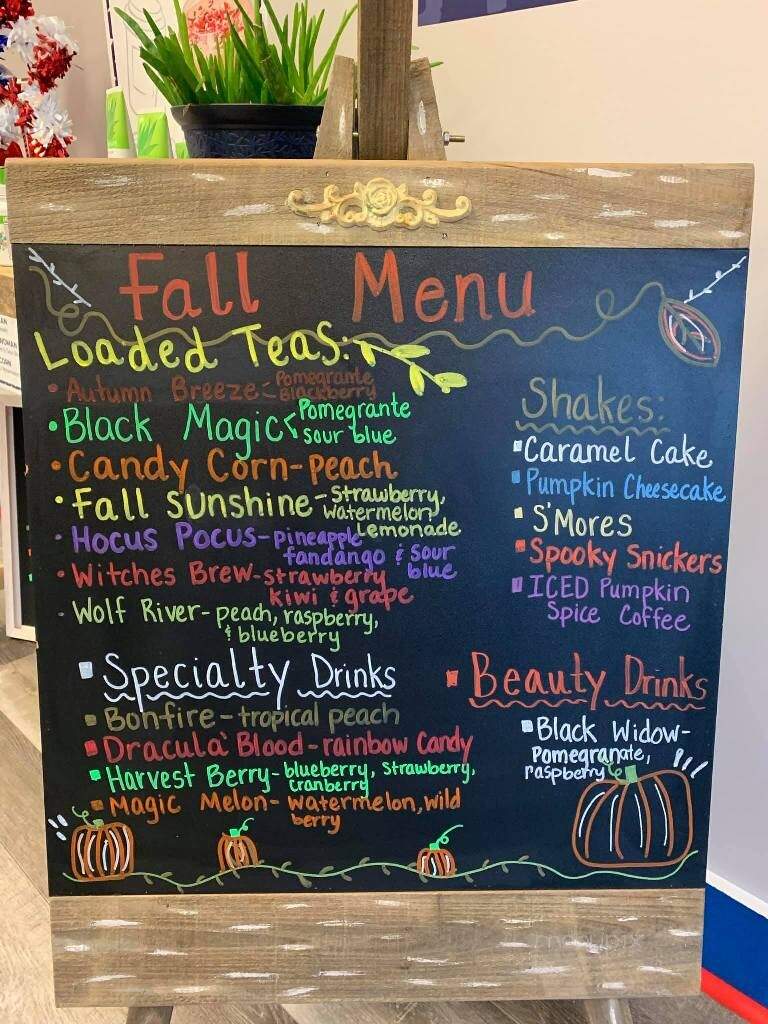 Fall Menu
Loaded Teas:
• Autumn Breeze < Pomegrante
Blackberry
• Black Magic < Pomegrante
sour blue
• Candy Corn - peach
• Fall Sunshine - Strawberry,
watermelon,
Lemonade
• Hocus Pocus - pineapple
fandango & sour
blue
• Witches Brew - strawberry
kiwi & grape
• Wolf River - peach, raspberry,
& blueberry
Shakes:
Caramel Cake
Pumpkin Cheesecake
S'Mores
Spooky Snickers
ICED Pumpkin
Spice Coffee
Specialty Drinks
Bonfire - tropical peach
Dracula' Blood - rainbow Candy
Harvest Berry - blueberry, strawberry,
cranberry
Magic Melon - watermelon, wild
berry
Beauty Drinks
Black Widow -
Pomegranate,
raspberry